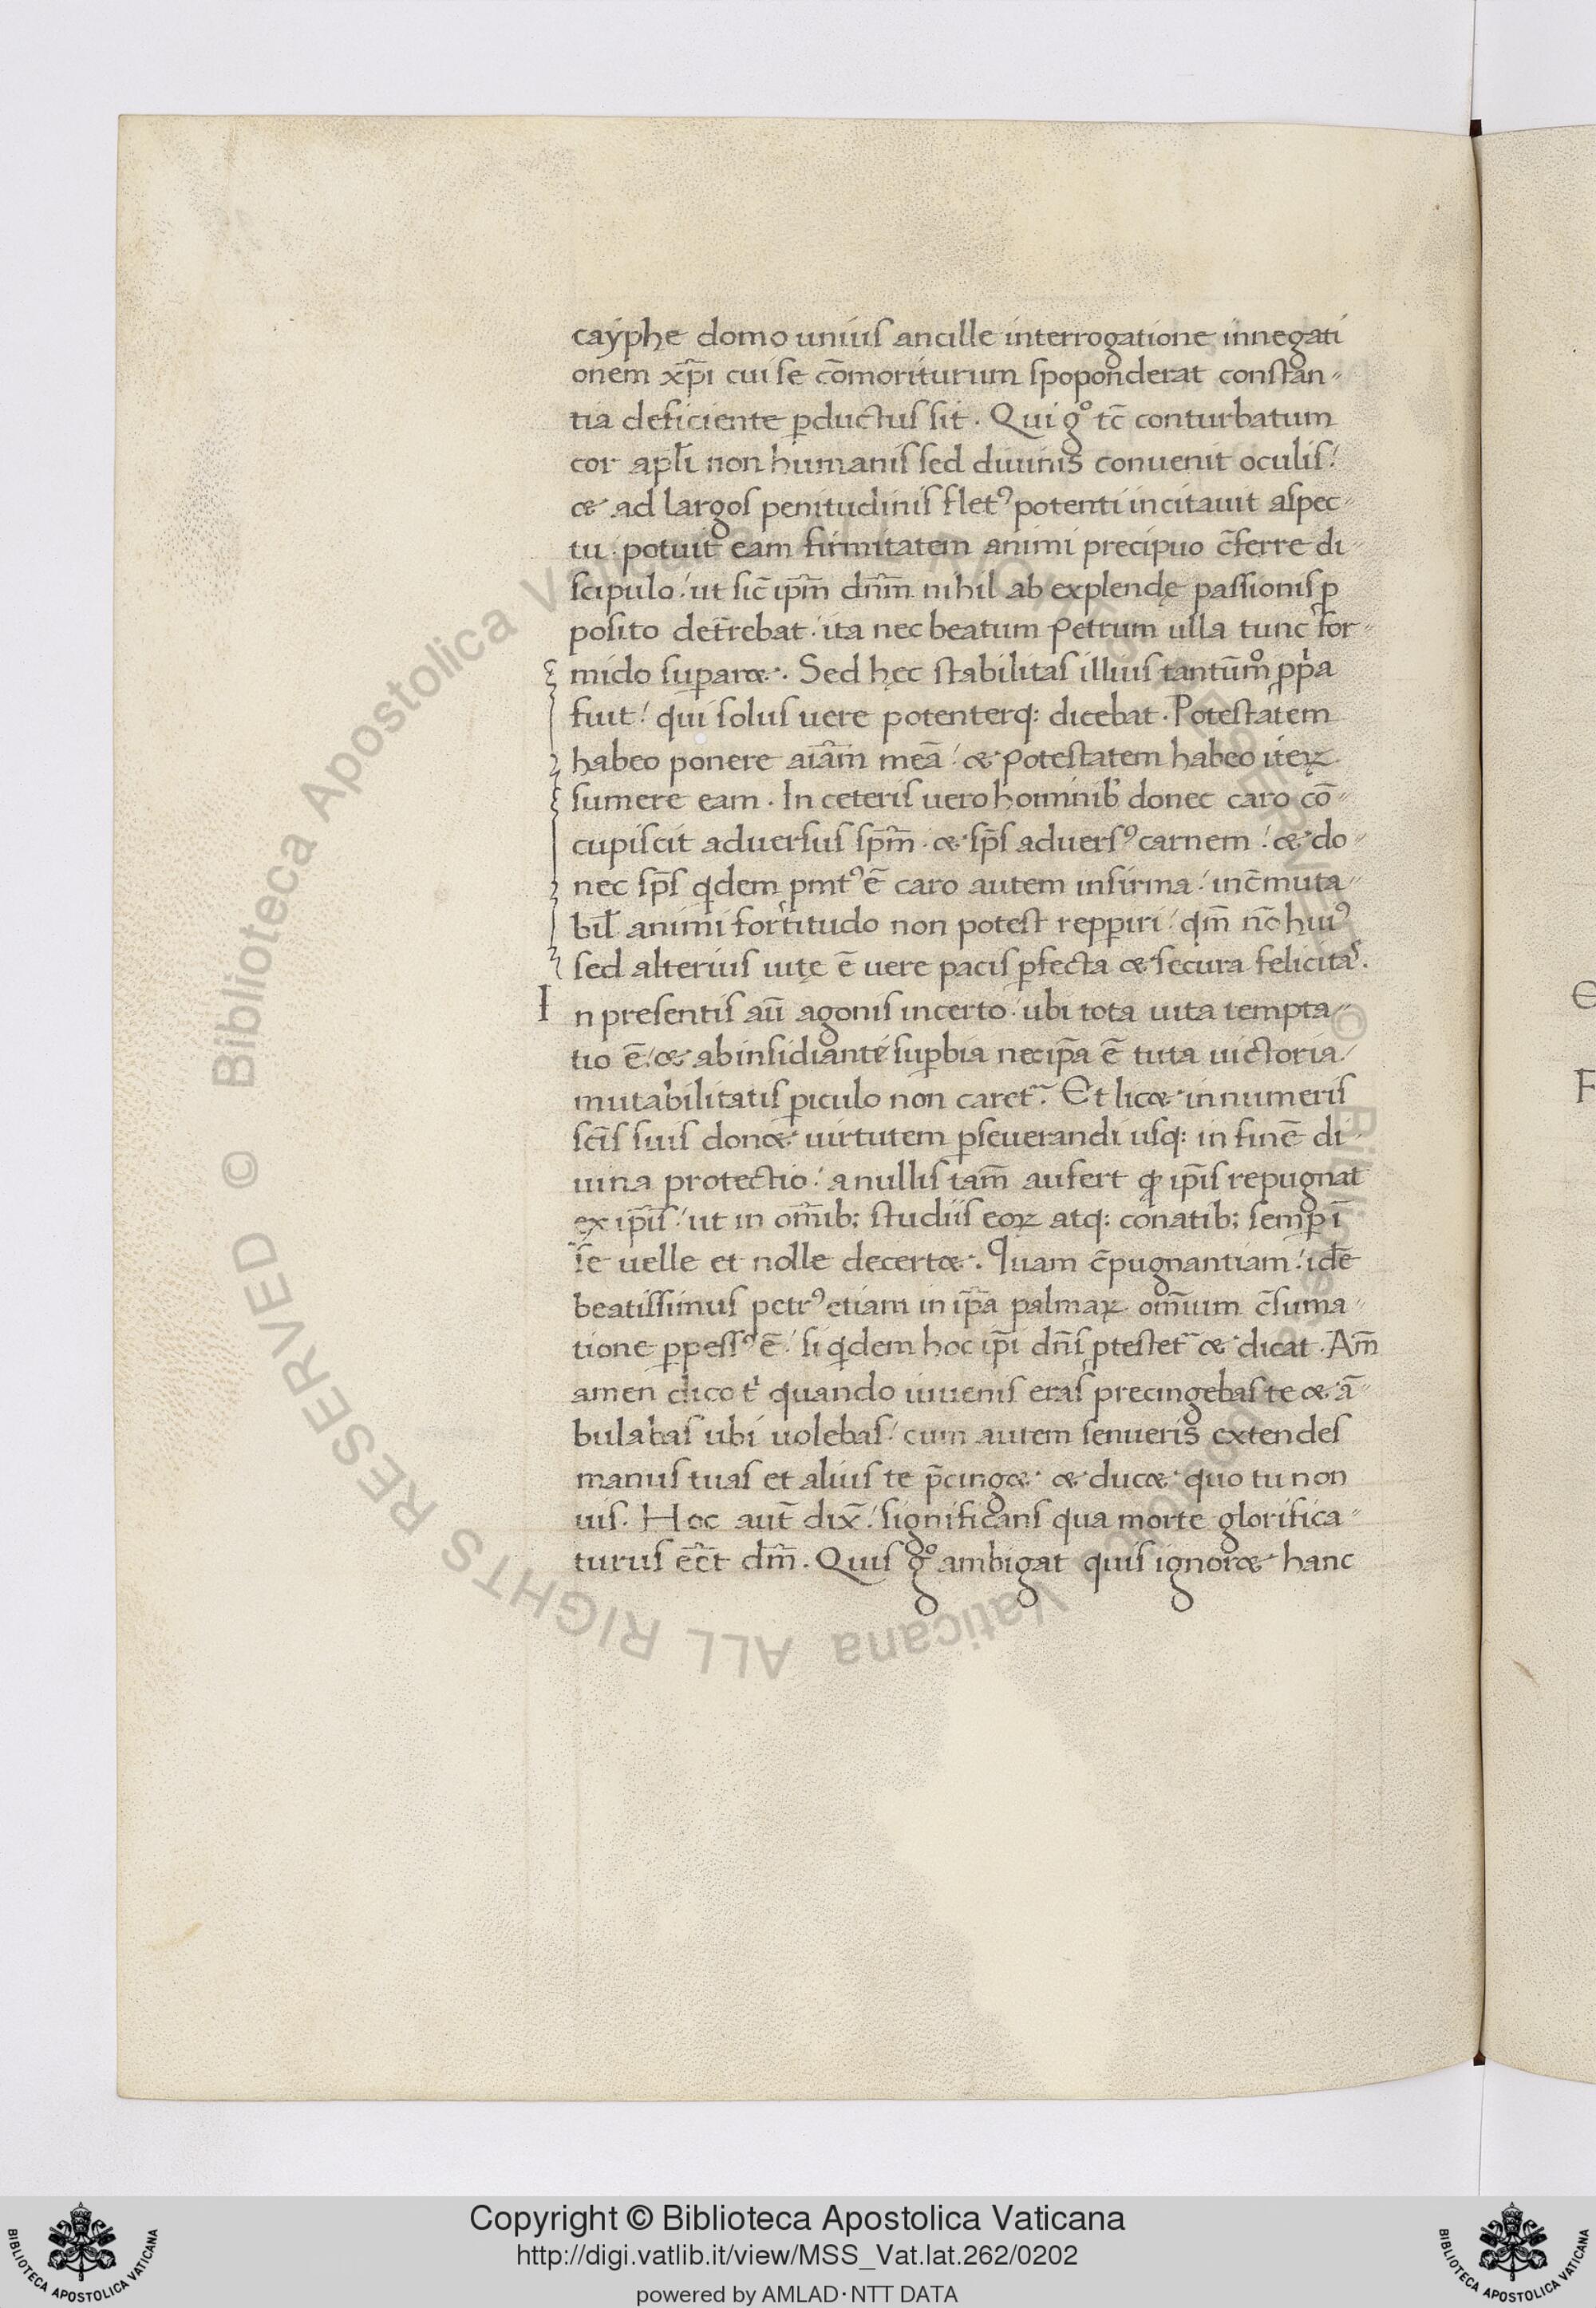 cayphe domo unius ancille interrogatione innegati
onem xp̄i cui se cōmoriturum spoponderat constan-
tia deficiente ꝑductus sit. Qui gͦ tc̄ conturbatum
cor apl̄i non humanis sed diuinis conuenit oculis/
& ad largos penitudinis fletꝰ potenti incitauit aspec-
tu. potuit eam firmitatem animi precipuo c̄ferre di-
scipulo. ut sic̄ ip̄m dn̄m nihil ab explendę passionis ꝓ
posito det̄rebat. ita nec beatum Petrum ulla tunc for-
mido suꝑar&. Sed hęc stabilitas illius tantūmͦ ꝓpͥa
fuit. qui solus uere potenterq; dicebat. Potestatem
habeo ponere aīam meā. & potestatem habeo iteꝝ
sumere eam. In ceteris uero hominib' donec caro cō-
cupiscit aduersus sp̄m. & sp̄s aduersꝰ carnem. & do-
nec sp̄s qͥdem ꝓmtꝰ ē caro autem infirma. inc̄muta-
bil̄ animi fortitudo non potest repꝑiri. qm̄ nō huiꝰ
sed alterius uitę ē uere pacis ꝑfecta & secura felicitas.
In presentis aū agonis incerto. ubi tota uita tempta-
tio ē. & ab insidiante suꝑbia nec ip̄a ē tuta uictoria/
mutabilitatis ꝑiculo non caret᷑. Et lic& innumeris
sc̄is suis don& uirtutem ꝑseuerandi usq; in finē di-
uina protectio. a nullis tam̄ aufert qͩ ip̄is repugnat
ex ip̄is. ut in om̄ib; studiis eoꝝ atq; conatib; semꝑ ī
se uelle et nolle decert&. Quam c̄pugnantiam. idē
beatissimus petrꝰ etiam in ip̄a palmaꝝ om̄ium c̄suma-
tione ꝑpessꝰ ē. si qͥdem hoc ip̄i dn̄s ꝓtestet᷑ & dicat. Am̄
amen dico tͥ quando iuuenis eras precingebas te & ā-
bulabas ubi uolebas. cum autem senueris extendes
manus tuas et alius te p̄cing& & duc& quo tu non
uis. Hoc aut̄ dix̄. significans qua morte glorifica-
turus eēt dm̄. Quis gͦ ambigat quis ignor& hanc
Copyright © Biblioteca Apostolica Vaticana
http://digi.vatlib.it/view/MSS_Vat.lat.262/0202
powered by AMLAD·NTT DATA
BIBLIOTECA APOSTOLICA VATICANA
BIBLIOTECA APOSTOLICA VATICANA
© Biblioteca Apostolica Vaticana ALL RIGHTS RESERVED © Biblioteca Apostolica Vaticana ALL RIGHTS RESERVED